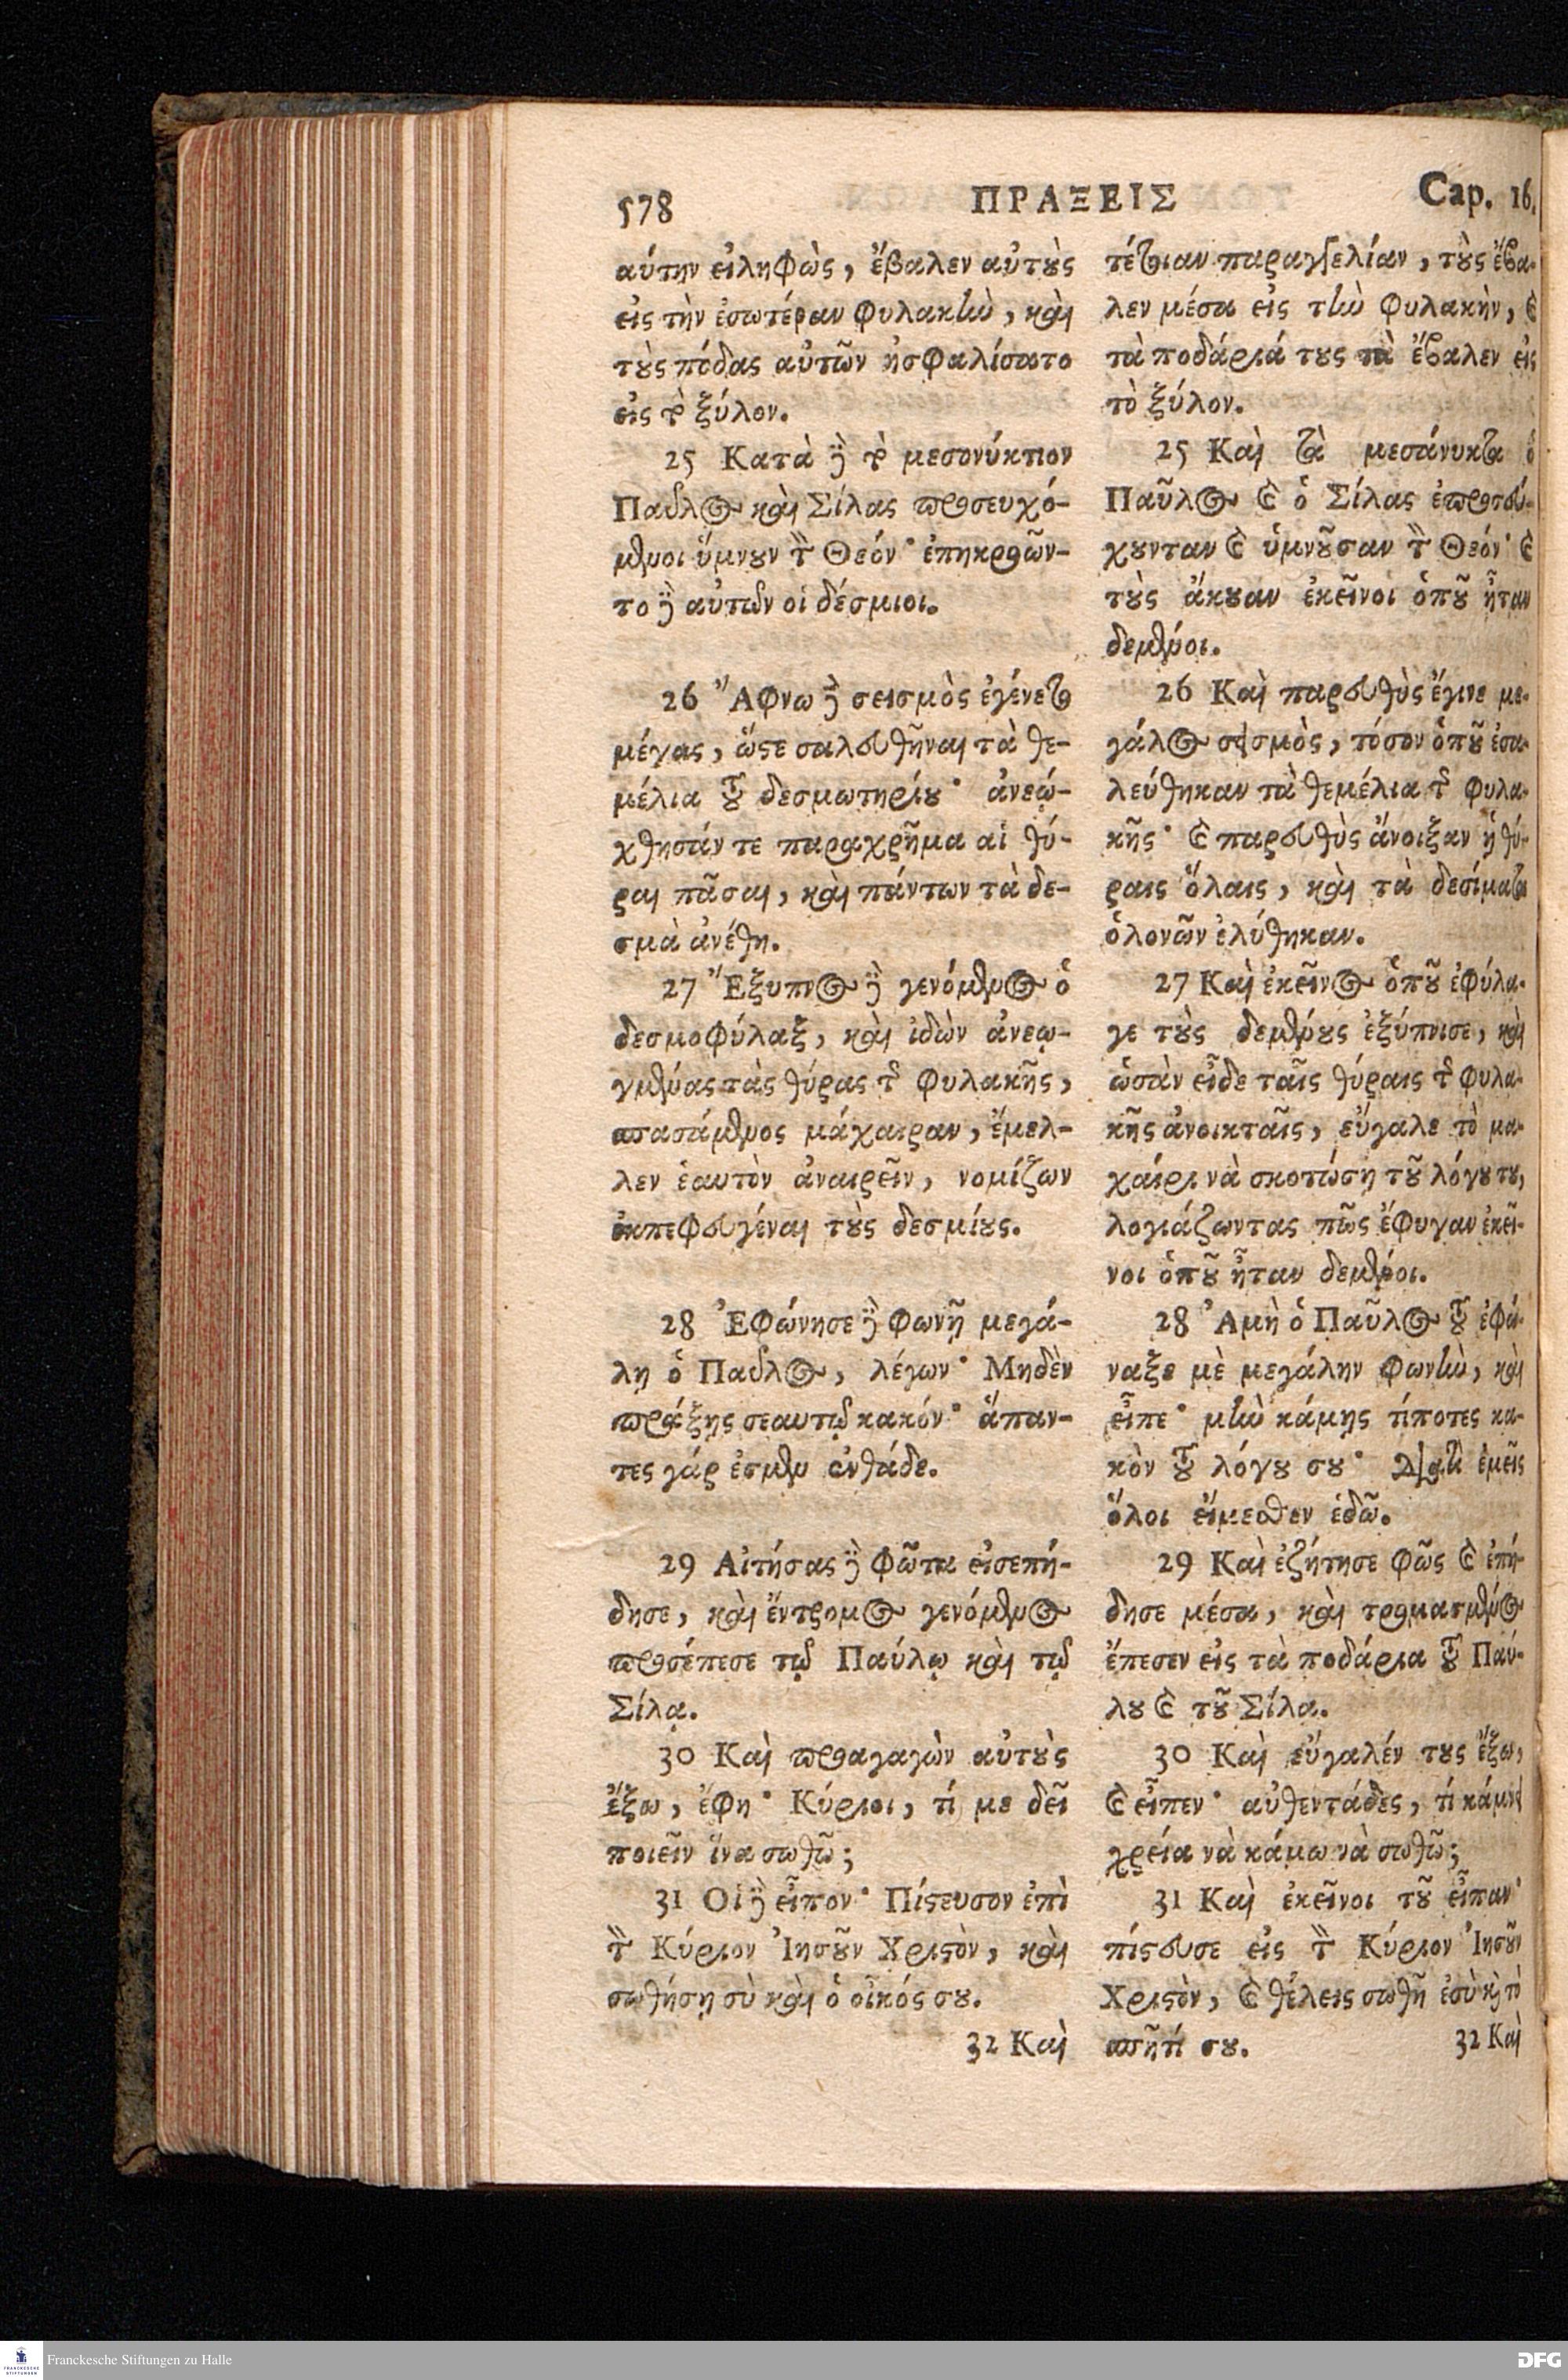 578
ΠΡΑΞΕΙΣ
Cap. 16.
αύτην εἰληφὼς, ἔβαλεν αὐτȣ̀ς
εἰς τὴν ἐσωτέραν φυλακlὼ, καὶ
τȣ̀ς πόδας αὐτῶν ἠσφαλίσατο
εἰς τὸ ξύλον.
25 Κατὰ δὲ τὸ μεσονύκτιον
Παῦλος καὶ Σίλας προσευχό-
μενοι ὕμνȣν τὸν Θεόν· ἐπηκροῶν-
το δὲ αὐτῶν οἱ δέσμιοι.
26 Ἄφνω δὲ σεισμὸς ἐγένετο
μέγας, ὥςε σαλευθῆναι τὰ θε-
μέλια τȣ͂ δεσμωτηρίȣ· ἀνεῴ-
χθησάν τε παραχρῆμα αἱ θύ-
ραι πᾶσαι, καὶ πάντων τὰ δε-
σμὰ ἀνέθη.
27 Ἔξυπνος δὲ γενόμενος ὁ
δεσμοφύλαξ, καὶ ἰδὼν ἀνεῳ-
γμένας τὰς θύρας τῆς φυλακῆς,
σπασάμενος μάχαιραν, ἔμελ-
λεν ἑαυτὸν ἀναιρεῖν, νομίζων
ἐκπεφευγέναι τȣ̀ς δεσμίȣς.
28 Ἐφώνησε δὲ φωνῇ μεγά-
λῃ ὁ Παῦλος, λέγων· Μηδὲν
πράξῃς σεαυτῷ κακόν· ἅπαν-
τες γάρ ἐσμεν ἐνθάδε.
29 Αἰτήσας δὲ φῶτα εἰσεπή-
δησε, καὶ ἔντρομος γενόμενος
προσέπεσε τῷ Παύλῳ καὶ τῷ
Σίλᾳ.
30 Καὶ προαγαγὼν αὐτȣ̀ς
ἔξω, ἔφη· Κύριοι, τί με δεῖ
ποιεῖν ἵνα σωθῶ;
31 Οἱ δὲ εἶπον· Πίςευσον ἐπὶ
τὸν Κύριον Ἰησȣ͂ν Χριςὸν, καὶ
σωθήσῃ σὺ καὶ ὁ οἶκός σȣ.
32 Καὶ
τέτοιαν παραγγελίαν, τȣ̀ς ἔβα-
λεν μέσα εἰς τlὼ φυλακὴν, καὶ
τὰ ποδάριά τȣς τὰ ἔβαλεν εἰς
τὸ ξύλον.
25 Καὶ τὰ μεσάνυκτα ὁ
Παῦλος καὶ ὁ Σίλας ἐπροσεύ-
χȣνταν καὶ ὑμνȣ͂σαν τὸν Θεόν· καὶ
τȣ̀ς ἄκȣαν ἐκεῖνοι ὁπȣ͂ ἦταν
δεμένοι.
26 Καὶ παρευθὺς ἔγινε με-
γάλος σεισμὸς, τόσον ὁπȣ͂ ἐσα-
λεύθηκαν τὰ θεμέλια τῆς φυλα-
κῆς· καὶ παρευθὺς ἄνοιξαν ἡ θύ-
ραις ὅλαις, καὶ τὰ δεσίματα
ὁλονῶν ἐλύθηκαν.
27 Καὶ ἐκεῖνος ὁπȣ͂ ἐφύλα-
γε τȣ̀ς δεμένȣς ἐξύπνισε, καὶ
ὡσὰν εἶδε ταῖς θύραις τῆς φυλα-
κῆς ἀνοικταῖς, εὔγαλε τὸ μα-
χαίρι νὰ σκοτώσῃ τȣ͂ λόγȣ τȣ,
λογιάζωντας πῶς ἔφυγαν ἐκεῖ-
νοι ὁπȣ͂ ἦταν δεμένοι.
28 Ἀμὴ ὁ Παῦλος τȣ͂ ἐφώ-
ναξε μὲ μεγάλην φωνlὼ, καὶ
εἶπε· μlὼ κάμῃς τίποτες κα-
κὸν τȣ͂ λόγȣ σȣ· διατὶ ἐμεῖς
ὅλοι εἴμεσθεν ἐδῶ.
29 Καὶ ἐζήτησε φῶς καὶ ἐπή-
δησε μέσα, καὶ τρομασμένος
ἔπεσεν εἰς τὰ ποδάρια τȣ͂ Παύ-
λȣ καὶ τȣ͂ Σίλα.
30 Καὶ εὐγαλέν τȣς ἔξω,
καὶ εἶπεν· αὐθεντάδες, τί κάμνει
χρεία νὰ κάμω νὰ σωθῶ;
31 Καὶ ἐκεῖνοι τȣ͂ εἶπαν·
πίςευσε εἰς τὸν Κύριον Ἰησȣ͂ν
Χριςὸν, καὶ θέλεις σωθῆ ἐσὺ καὶ τὸ
σπῆτί σȣ.
32 Καὶ
FRANCKESCHE STIFTUNGEN
Franckesche Stiftungen zu Halle
DFG